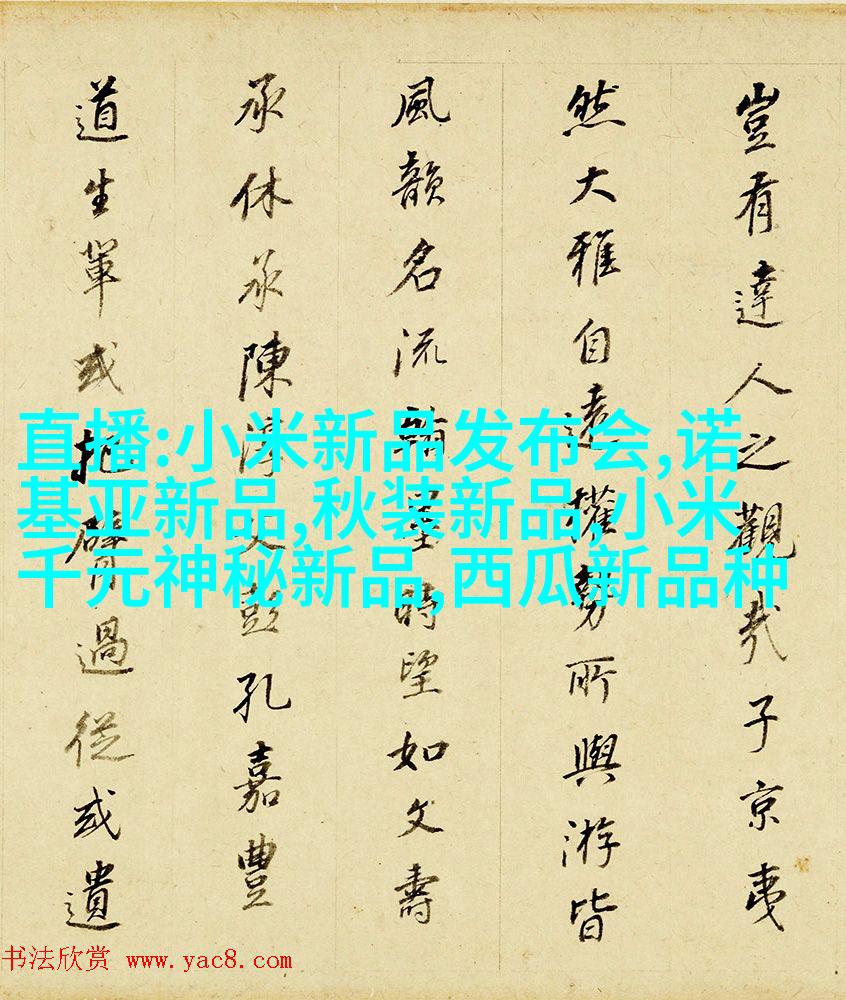 豈有達人之觀哉子京夷
然大雅自遠權勢所與游皆
風韻名流翰墨時望如文壽
承休承陳淳文彭孔嘉豐
道生輩或把臂過從或遺
直播:小米新品发布会,诺
基亚新品,秋装新品,小米
千元神秘新品,西瓜新品种
书法欣赏 www.yac8.com